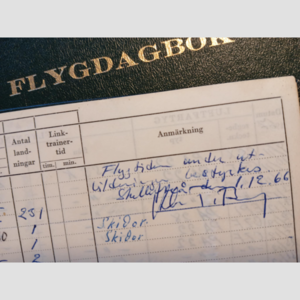 FLYGDAGBOK
Antal land- ningar
Link- trainer- tid
tim. min.
Anmärkning
Flygtiden under ut-
bildningen bestyrkes
1.12.66
231
1 Skidor
1 Skidor
2